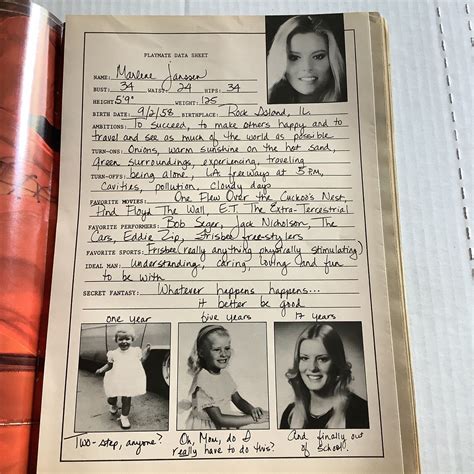 PLAYMATE DATA SHEET
NAME: Marlene Janssen
BUST: 34 WAIST: 24 HIPS: 34
HEIGHT: 5'9" WEIGHT: 125
BIRTH DATE: 9/2/58 BIRTHPLACE: Rock Island, IL.
AMBITIONS: To succeed, to make others happy and to
travel and see as much of the world as possible.
TURN-ONS: Onions, warm sunshine on the hot sand,
green surroundings, experiencing, traveling
TURN-OFFS: being alone, LA freeways at 5 PM,
Cavities, pollution, cloudy days
FAVORITE MOVIES: One Flew Over the Cuckoo's Nest,
Pink Floyd The Wall, E.T. The Extra-Terrestrial
FAVORITE PERFORMERS: Bob Seger, Jack Nicholson, The
Cars, Eddie Zip, Frisbee free-stylers
FAVORITE SPORTS: Frisbee (really anything physically stimulating)
IDEAL MAN: Understanding, caring, loving and fun
to be with
SECRET FANTASY: Whatever happens happens...
it better be good
one year five years 17 years
Two-step, anyone? Oh, Mom, do I really have to do this? And finally out of school!